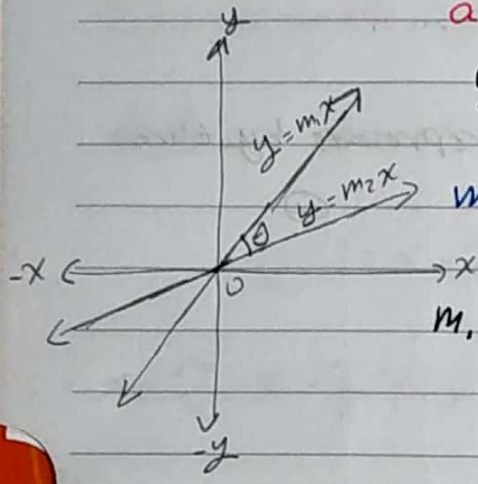 y
a
y=m₁x
y=m₂x
m
θ
-x
x
O
m₁
-y